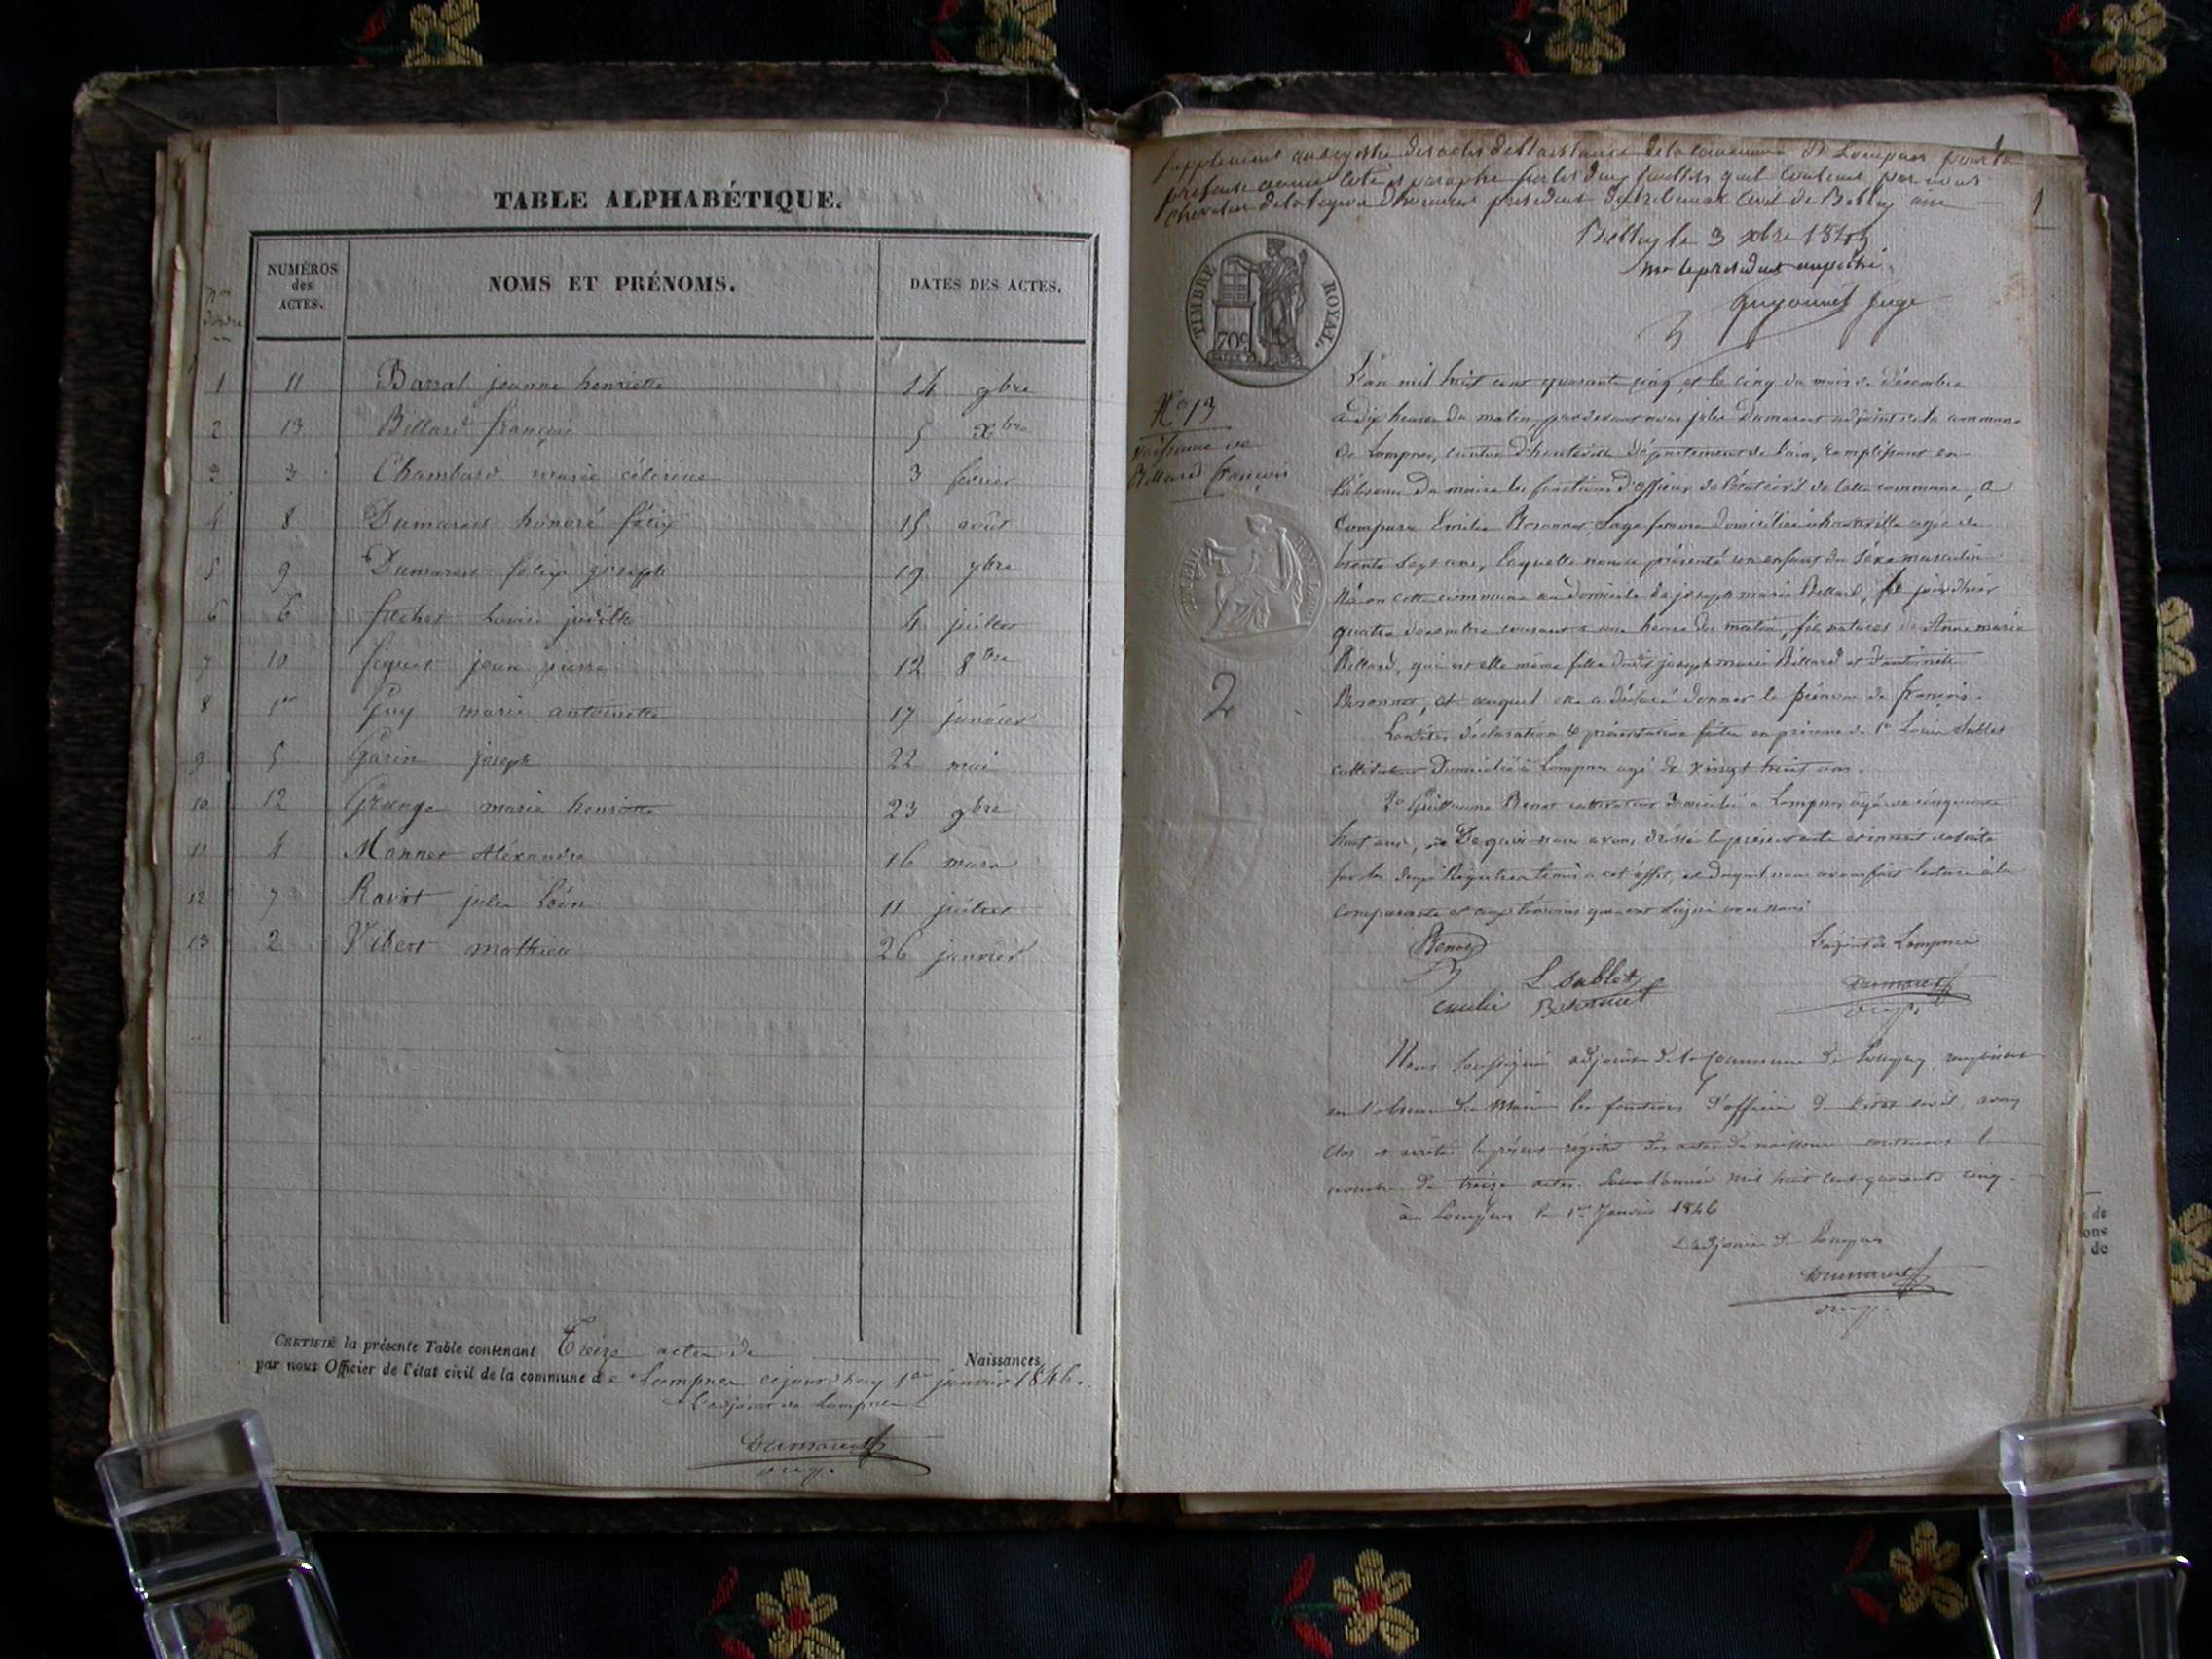 TABLE ALPHABÉTIQUE.
NUMÉROS des ACTES.
NOMS ET PRÉNOMS.
DATES DES ACTES.
1 11 Barral jeanne henriette 14 9bre
2 13 Billard françois 5 Xbre
3 3 Chambard marie 3 février
4 8 Dumarest honoré félix 15 août
5 9 Dumarest félix joseph 19 7bre
6 6 4 juillet
7 10 jean pierre 12 8bre
8 1er Guy marie antoinette 17 janvier
9 5 Garin joseph 22 mai
10 12 Grange marie henriette 23 9bre
11 4 Monnet Aléxandre 16 mars
12 7 Ravot jules Léon 11 juillet
13 2 Vibert mathieu 26 janvier
CERTIFIÉ la présente Table contenant Treize actes de Naissances
par nous Officier de l'état civil de la commune de Lompnes cejourd'huy 1er janvier 1846.
L'adjoint de Lompnes
Dumarest
Supplément au registre des actes de Naissance de la commune de Lompnes pour la
présente année coté et paraphé par les deux feuillets qu'il contient, par nous
Chevalier de la légion d'honneur président du tribunal civil de Belley
1
Belley le 3 xbre 1845
Mr le président empêché.
juge
TIMBRE ROYAL.
70c
No 13
naissance de
Billard françois
2
L'an mil huit cent quarante cinq et le cinq du mois de Décembre
à dix heures du matin, pardevant nous jules Dumarest adjoint de la commune
de Lompnes, canton d'hauteville Département de l'ain, remplissant en
l'absence du maire les fonctions d'officier de l'état civil de cette commune, a
comparu Emilie Besonnet Sage femme domiciliée à hauteville agée de
trente sept ans, laquelle nous a présenté un enfant du séxe masculin
Né en cette commune au domicile de joseph marie Billard, le jour d'hier
quatre décembre courant à une heure du matin, fils naturel de Anne marie
Billard, qui est elle même fille dudit joseph marie Billard et d'antoinette
Besonnet, et auquel elle a déclaré donner le prénom de françois.
Lesdites déclaration & présentation faites en présence de 1o Louis Sublet
cultivateur Domicilié à Lompnes agé de vingt huit ans.
2o Guillaume Benoit cultivateur domicilié à Lompnes âgé de cinquante
huit ans, De quoi nous avons dréssé le présent acte et inscrit de suite
sur les deux Registres tenus à cet éffet, et duquel nous avons fait lecture à la
comparante et aux témoins qui ont signé avec nous
Benoit
L'adjoint de Lompnes
L Sublet
emelie Besonnet
Dumarest
Nous soussigné adjoint de la Commune de Lompnes, remplissant
en l'absence du Maire les fonctions d'officier de l'état civil, avons
clos et arrêté le présent régistre des actes de naissance contenant le
nombre de treize actes. pour l'année mil huit cent quarante cinq.
à Lompnes le 1er Janvier 1846
L'adjoint de Lompnes
Dumarest
de
ons
de